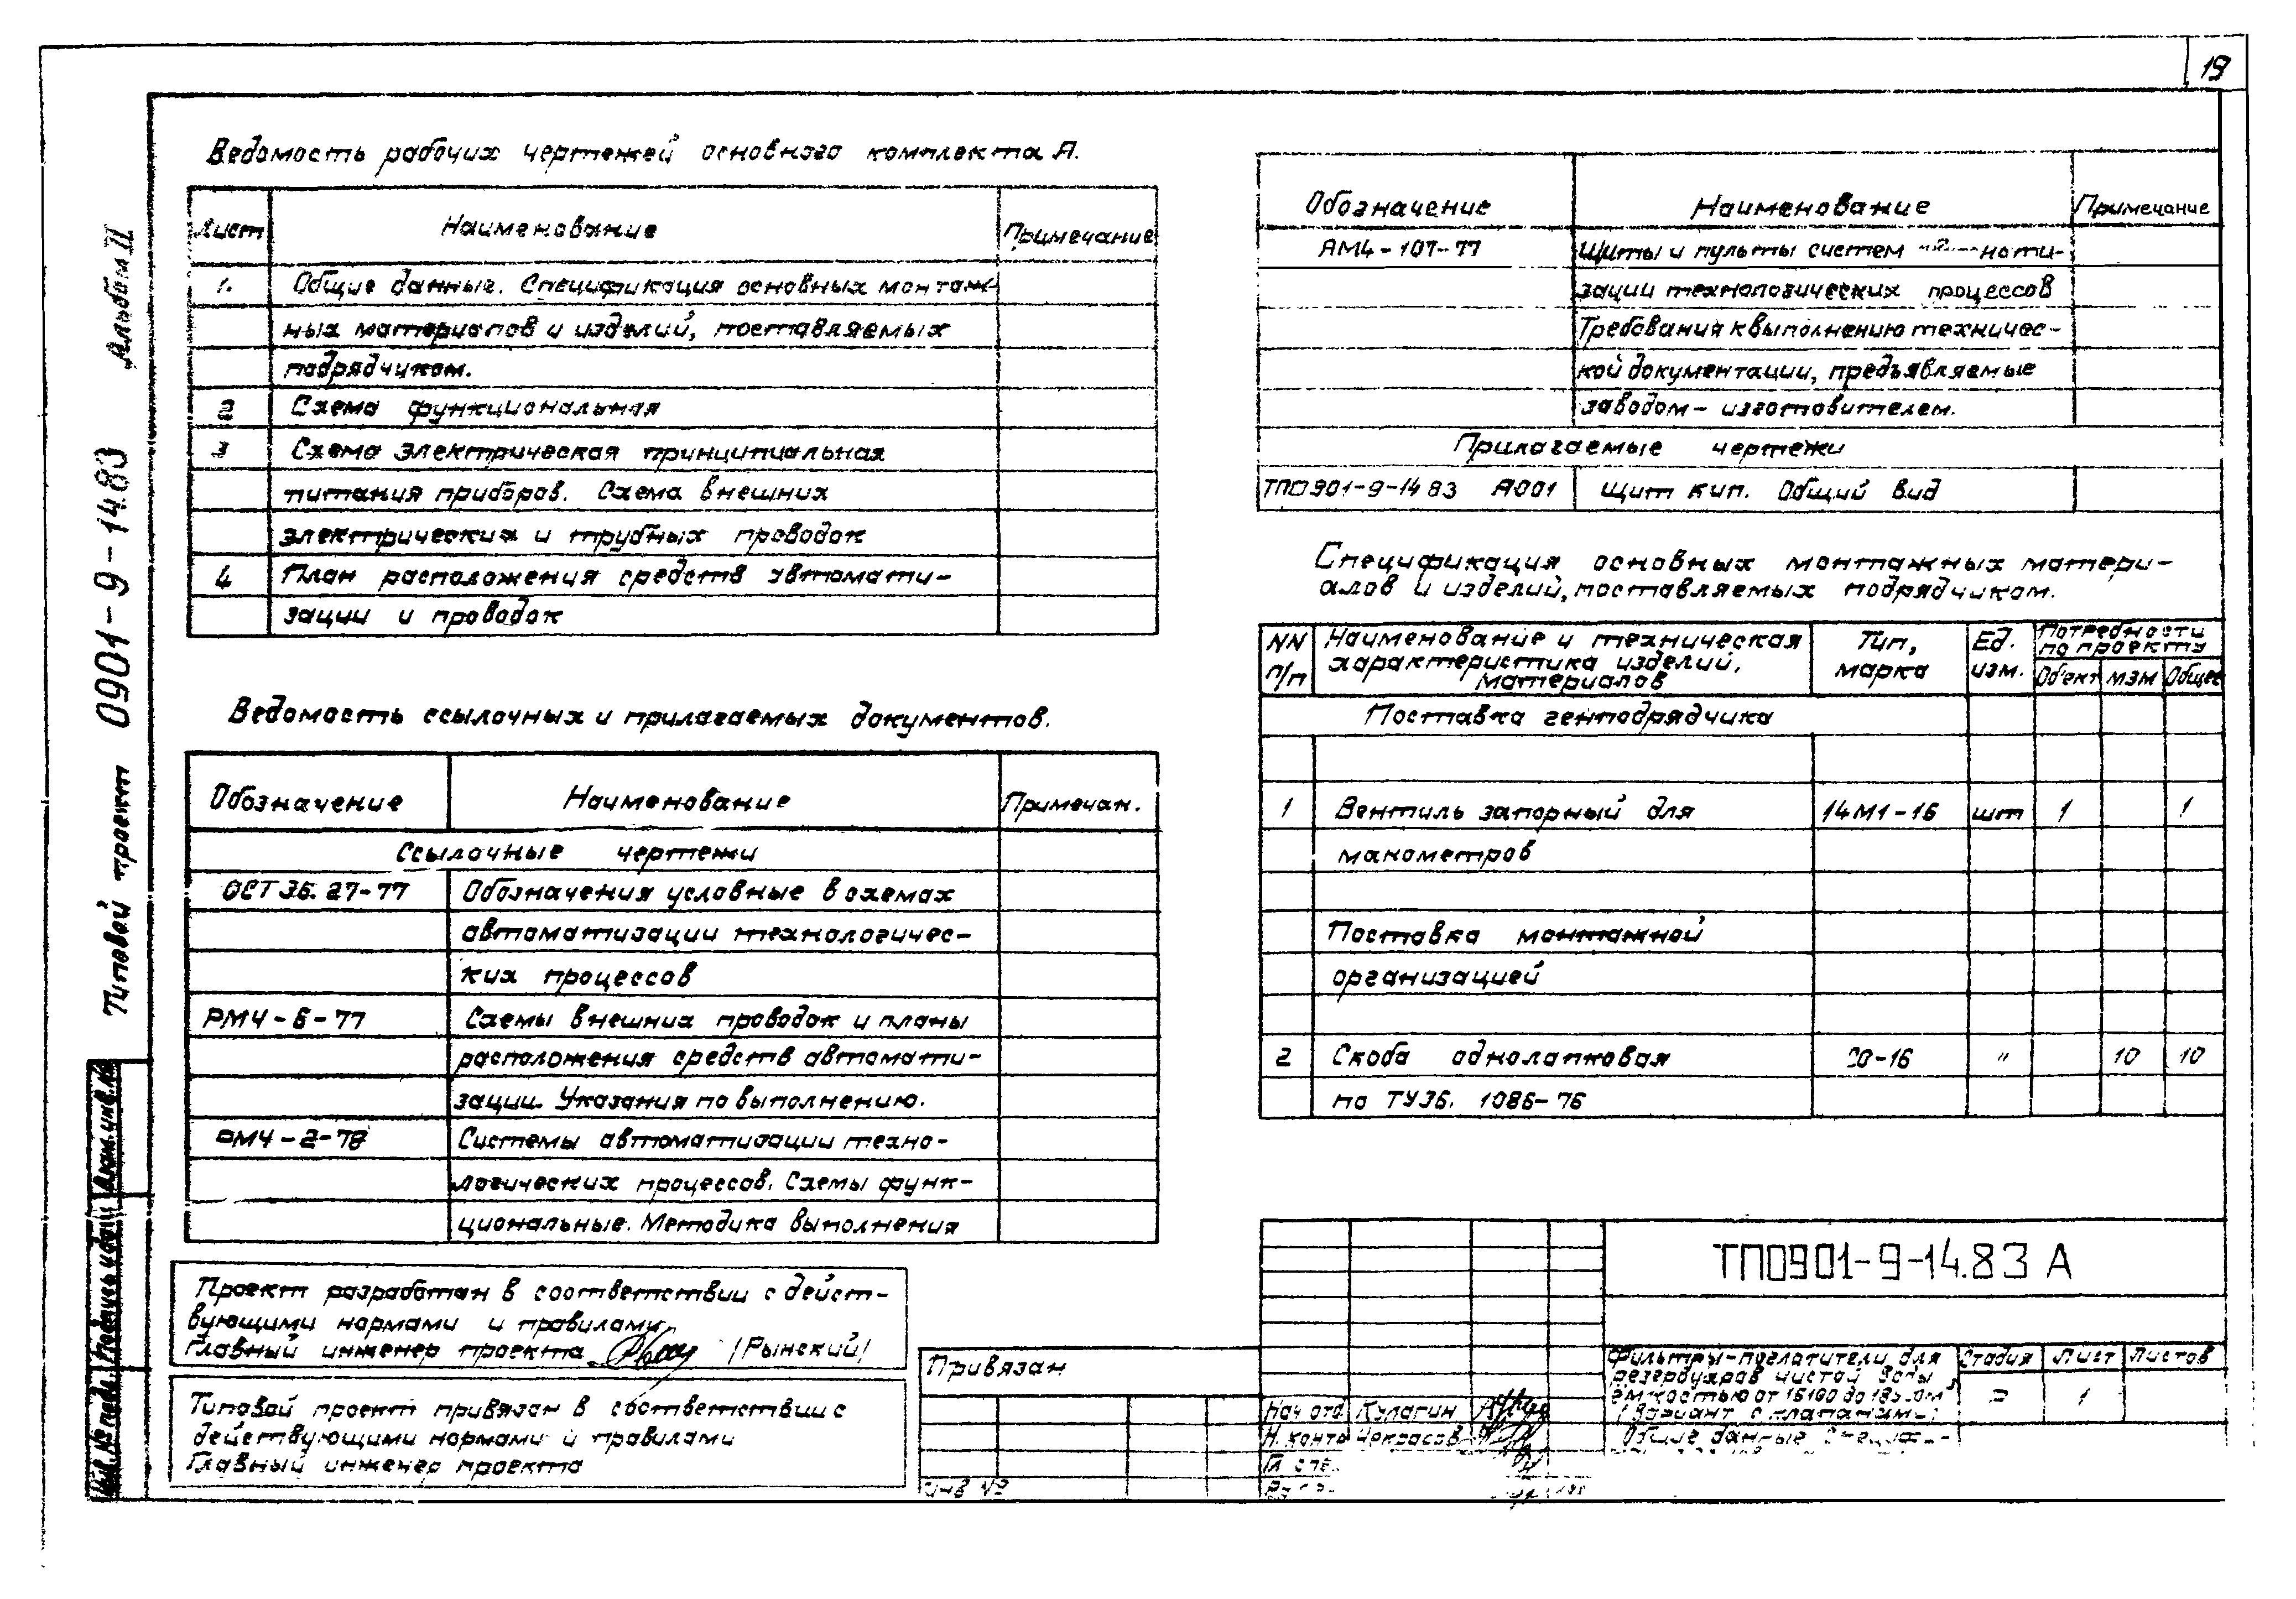 19
Альбом II
Типовой проект 0901-9-14.83
Ведомость рабочих чертежей основного комплекта А.
Лист Наименование Примечание
1. Общие данные. Спецификация основных монтаж-
ных материалов и изделий, поставляемых
подрядчиком.
2 Схема функциональная
3 Схема электрическая принципиальная
питания приборов. Схема внешних
электрических и трубных проводок
4 План расположения средств автомати-
зации и проводок
Ведомость ссылочных и прилагаемых документов.
Обозначение Наименование Примечан.
Ссылочные чертежи
ОСТ 36. 27-77 Обозначения условные в схемах
автоматизации технологичес-
ких процессов
РМ4-6-77 Схемы внешних проводок и планы
расположения средств автомати-
зации. Указания по выполнению.
РМ4-2-78 Системы автоматизации техно-
логических процессов. Схемы функ-
циональные. Методика выполнения
Проект разработан в соответствии с дейст-
вующими нормами и правилами
Главный инженер проекта (Рынский)
Типовой проект привязан в соответствии с
действующими нормами и правилами
Главный инженер проекта
Обозначение Наименование Примечание
РМ4-107-77 Щиты и пульты систем
зации технологических процессов
Требования к выполнению техничес-
кой документации, предъявляемые
заводом-изготовителем.
Прилагаемые чертежи
ТП0901-9-14 83 А001 Щит КИП. Общий вид
Спецификация основных монтажных матери-
алов и изделий, поставляемых подрядчиком.
NN п/п Наименование и техническая характеристика изделий, материалов Тип, марка Ед. изм. Потребности по проекту
Объект МЗМ Общее
Поставка генподрядчика
1 Вентиль запорный для 14М1-16 шт 1 1
манометров
Поставка монтажной
организацией
2 Скоба однолапковая СО-16 " 10 10
по ТУ36. 1086-76
ТП0901-9-14.83 А
Привязан
Инв №
Фильтры-поглотители для
резервуаров чистой воды
емкостью от
(Вариант с клапанами)
Общие данные
Стадия Лист Листов
1
Нач отд Кулагин
Н. конт Некрасов
Гл спе.
Инв. № подл. Подпись и дата Взам. инв. №